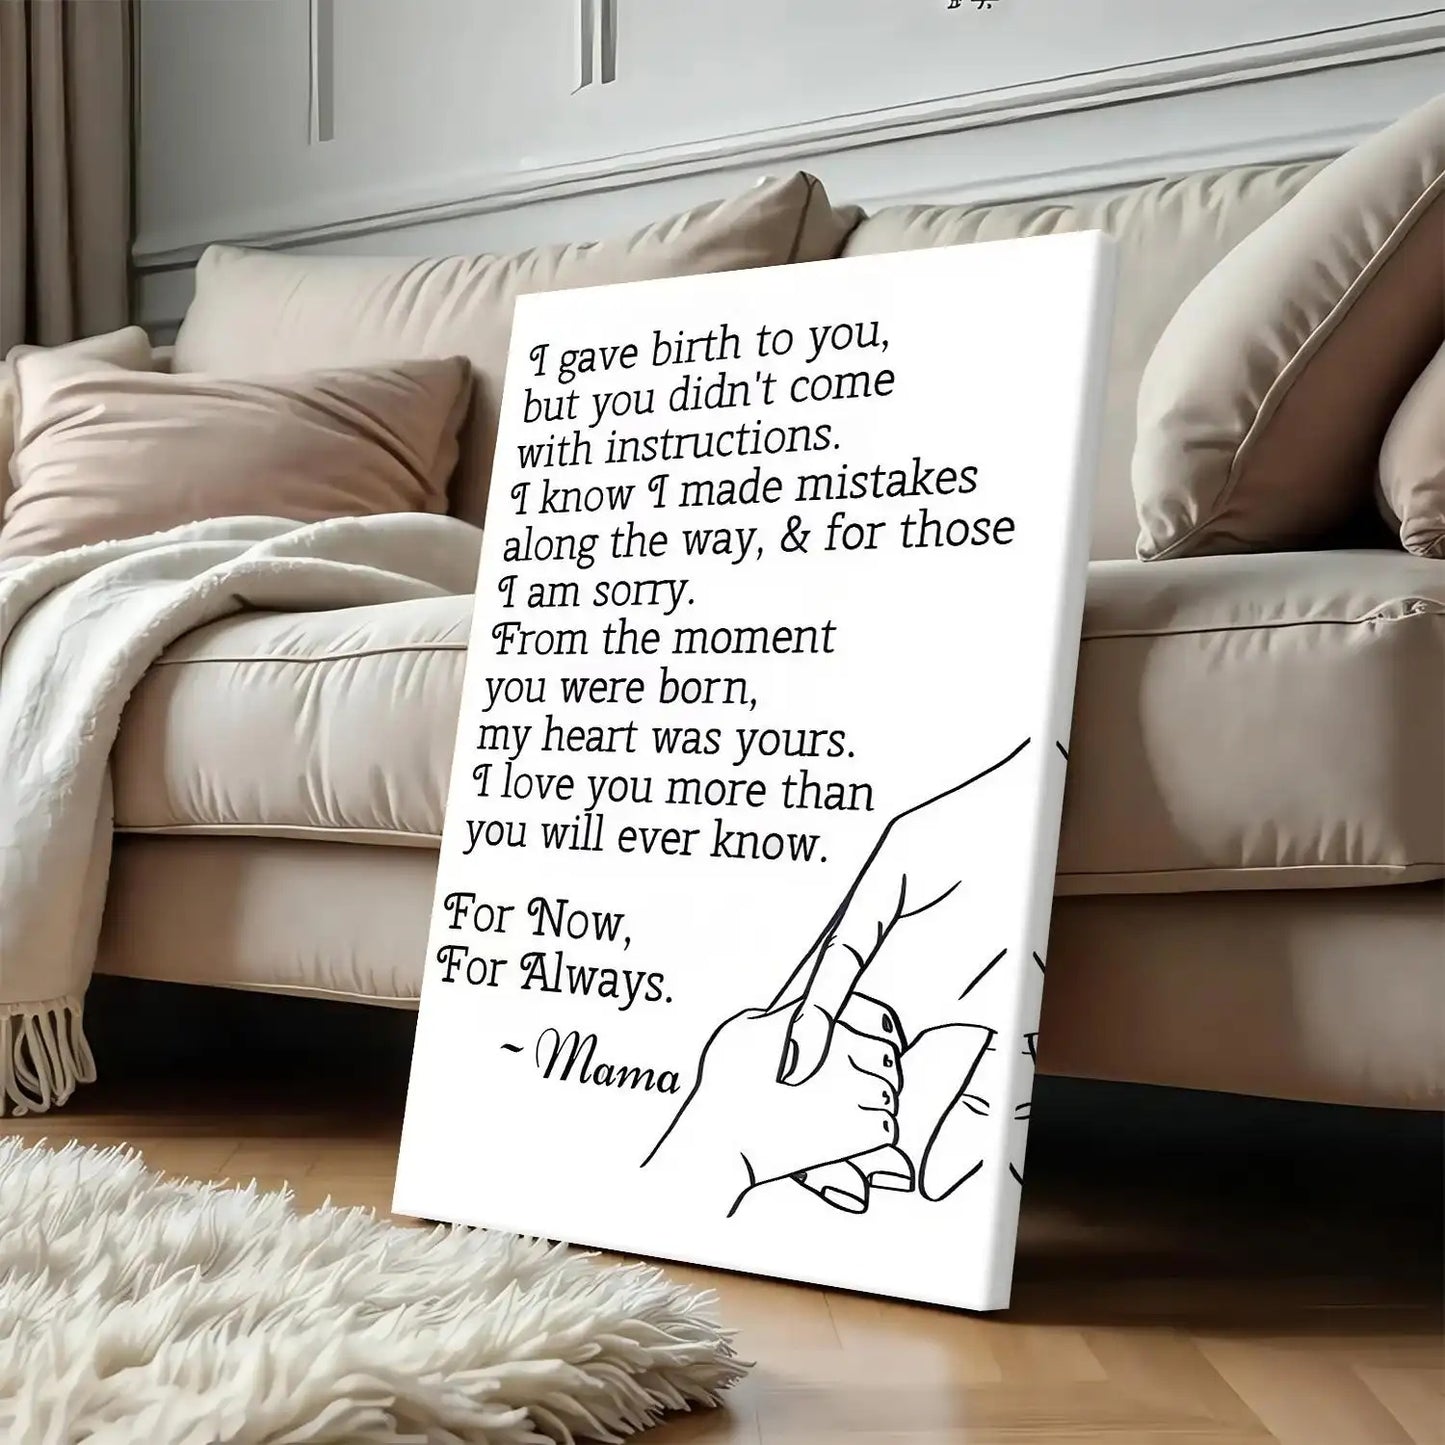 I gave birth to you,
but you didn't come
with instructions.
I know I made mistakes
along the way, & for those
I am sorry.
From the moment
you were born,
my heart was yours.
I love you more than
you will ever know.
For Now,
For Always.
~ Mama